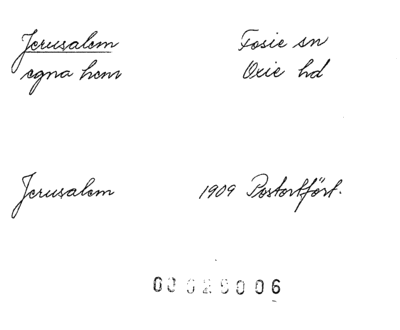 Jerusalem Fosie sn
egna hem Oxie hd
Jerusalem 1909 Postortfört.